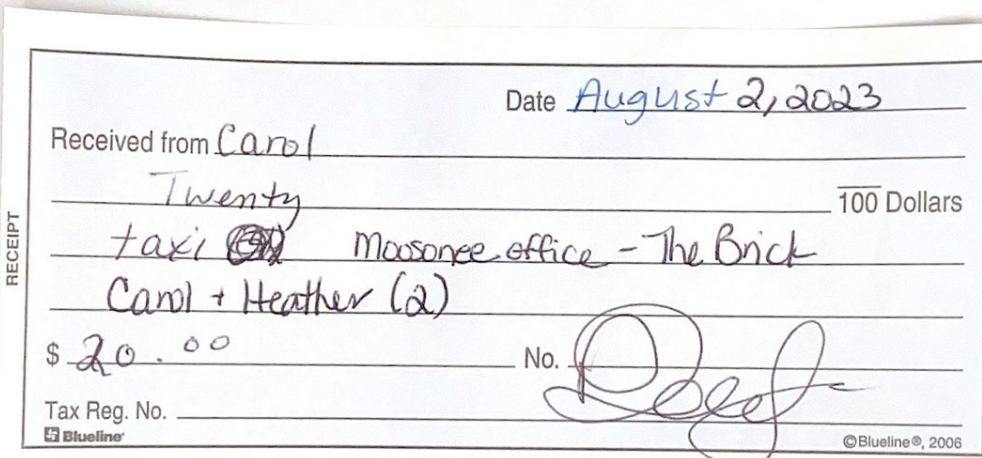 Date August 2, 2023
Received from Carol
Twenty 100 Dollars
taxi Moosonee office - The Brick
Carol + Heather (2)
$ 20.00 No.
Tax Reg. No.
Blueline ©Blueline®, 2006
RECEIPT